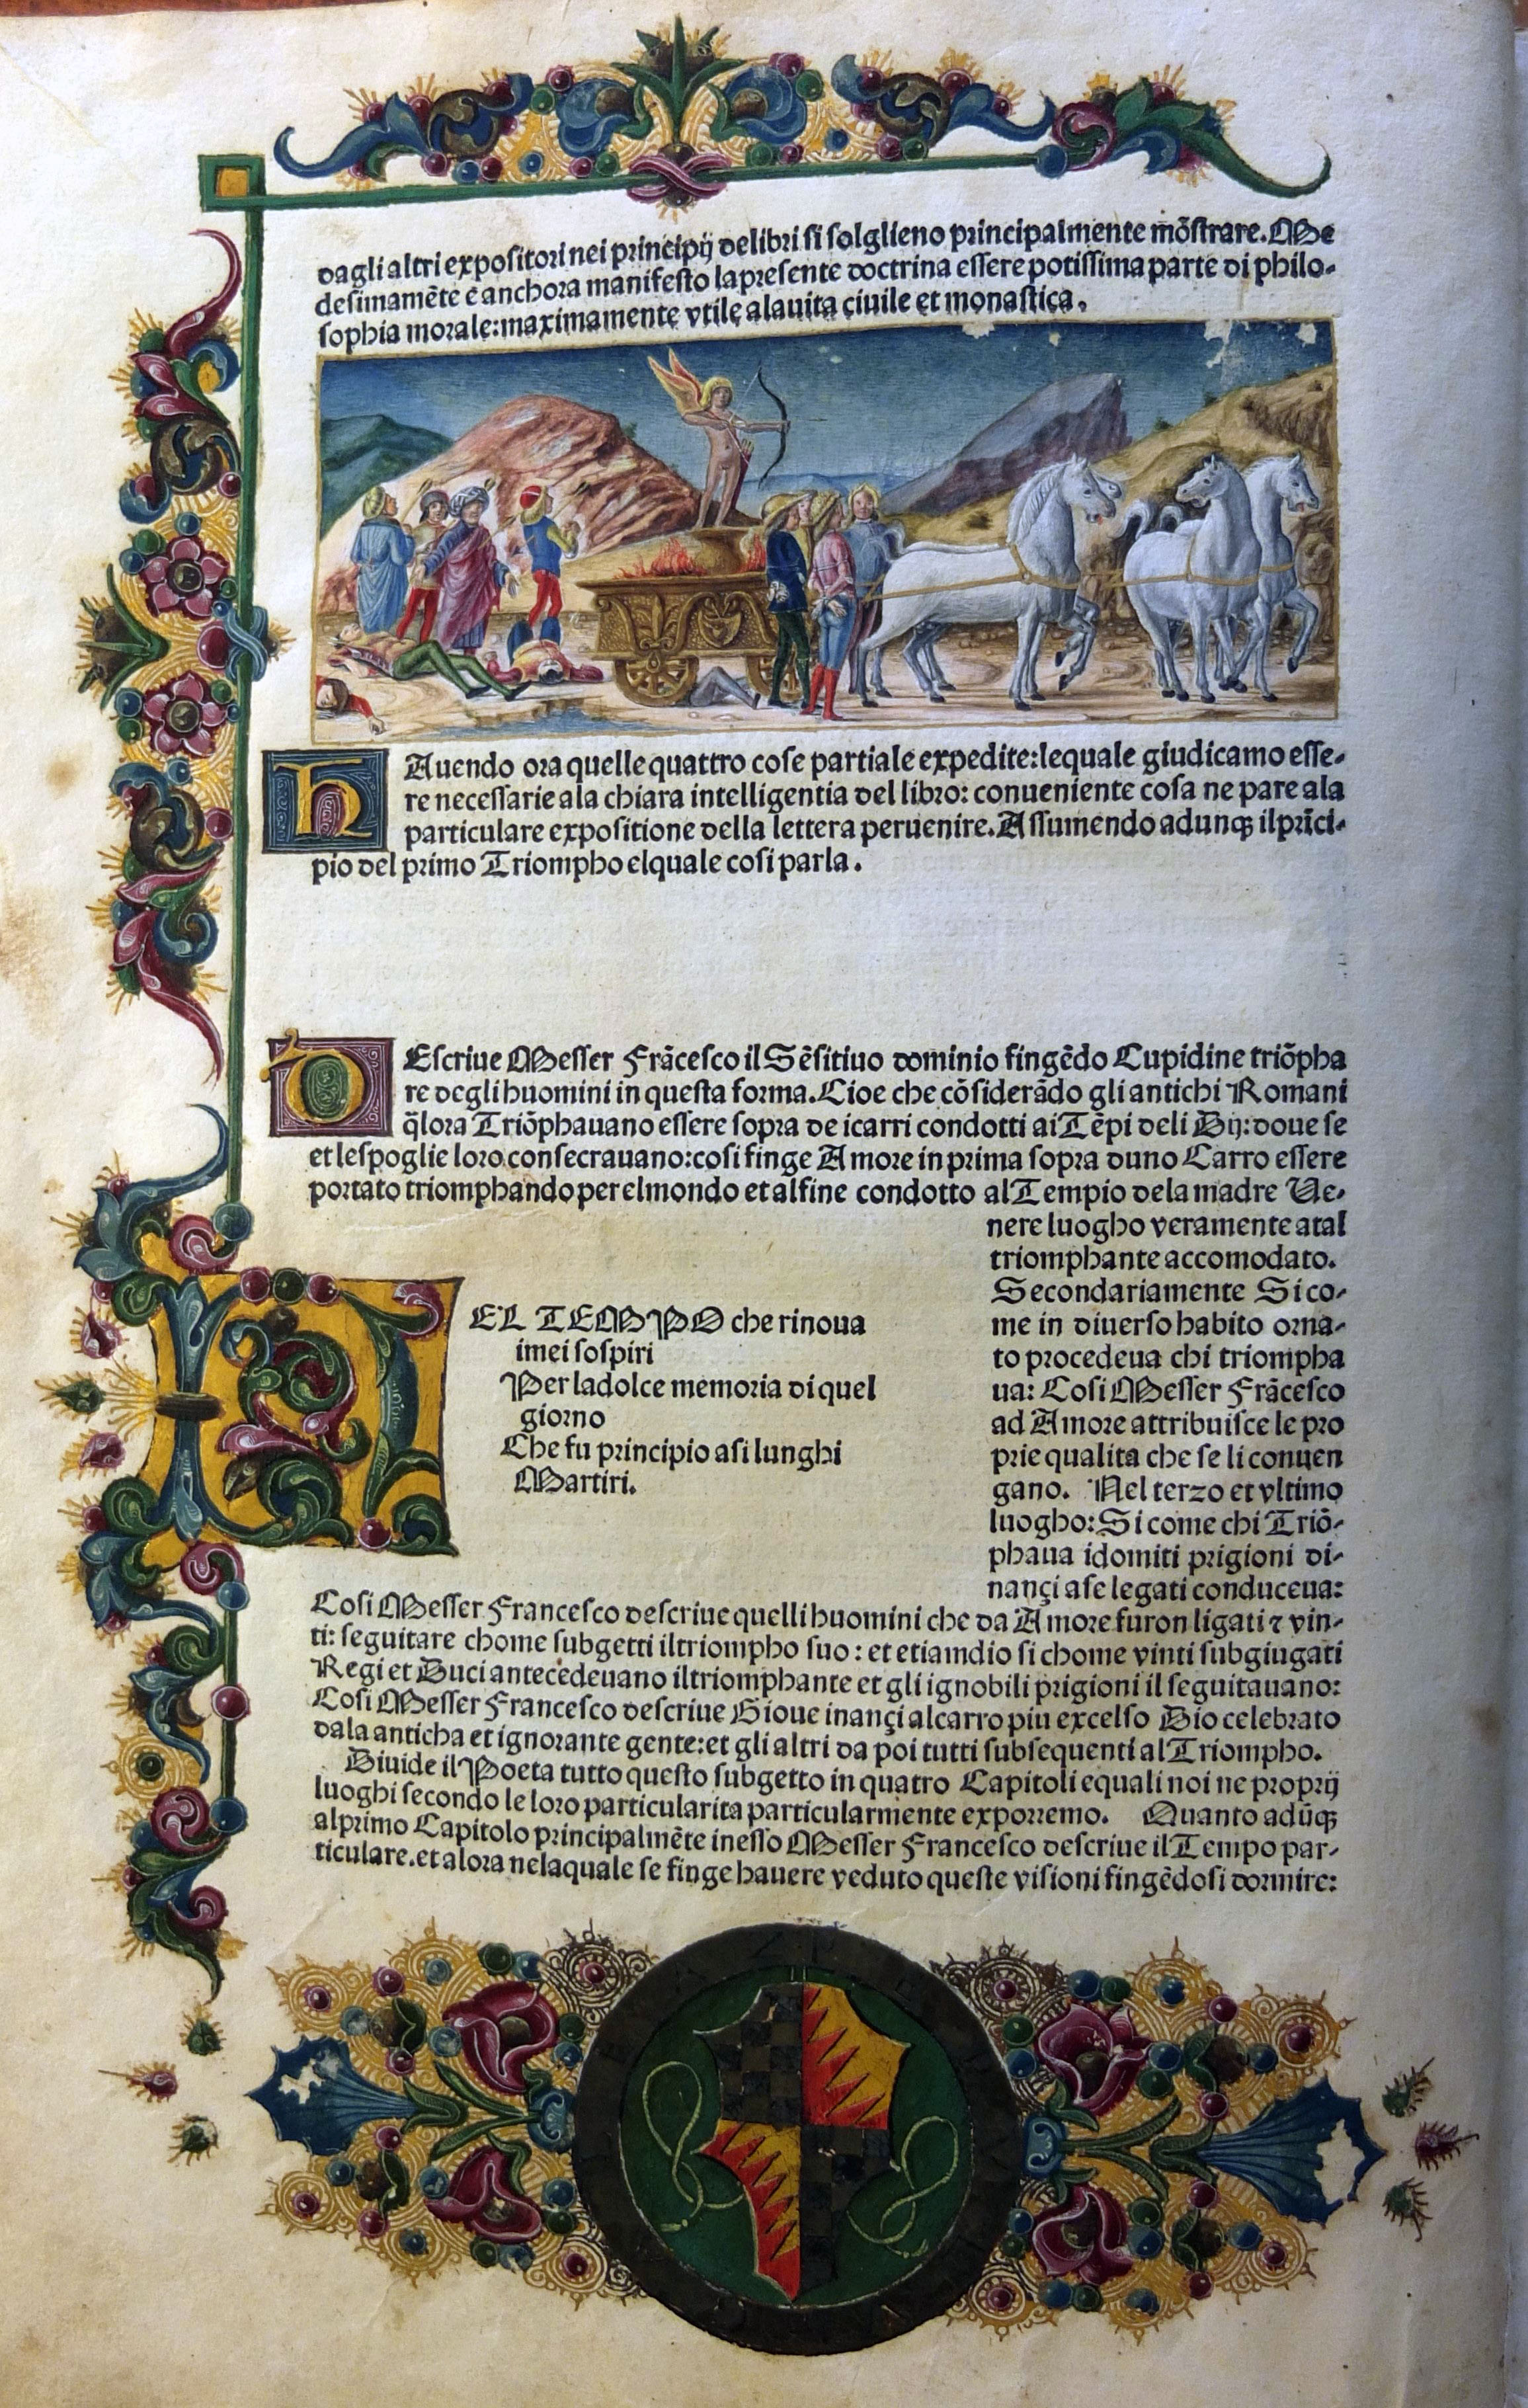 dagli altri expositori nei principij delibri si solglieno principalmente mõstrare. Me
desimamẽte e anchora manifesto la presente doctrina essere potissima parte di philo-
sophia morale: maximamente vtile alauita çiuile et monastiça.
HAuendo ora quelle quattro cose partiale expedite: lequale giudicamo esse-
re necessarie ala chiara intelligentia del libro: conueniente cosa ne pare ala
particulare expositione della lettera peruenire. Assumendo adunqꝫ il prĩci-
pio del primo Triompho elquale cosi parla.
DEscriue Messer Frãcesco il Sẽsitiuo dominio fingẽdo Cupidine triõpha
re degli huomini in questa forma. Cioe che cõsiderãdo gli antichi Romani
q̃lora Triõphauano essere sopra de icarri condotti ai Tẽpi deli Dij: doue se
et lespoglie loro consecrauano: cosi finge Amore in prima sopra duno Carro essere
portato triomphando per elmondo et alfine condotto al Tempio dela madre Ue-
nere luogho veramente atal
triomphante accomodato.
Secondariamente Si co-
me in diuerso habito orna-
to procedeua chi triompha
ua: Cosi Messer Frãcesco
ad Amore attribuisce le pro
prie qualita che se li conuen
gano. Nel terzo et vltimo
luogho: Si come chi Triõ-
phaua idomiti prigioni di-
nançi ase legati conduceua:
NEL TEMPO che rinoua
imei sospiri
Per ladolce memoria di quel
giorno
Che fu principio asi lunghi
Martiri.
Cosi Messer Francesco descriue quelli huomini che da Amore furon ligati ⁊ vin-
ti: seguitare chome subgetti il triompho suo: et etiamdio si chome vinti subgiugati
Regi et Duci antecedeuano iltriomphante et gli ignobili prigioni il seguitauano:
Cosi Messer Francesco descriue Gioue inançi alcarro piu excelso Dio celebrato
dala anticha et ignorante gente: et gli altri da poi tutti subsequenti al Triompho.
Diuide il Poeta tutto questo subgetto in quatro Capitoli equali noi ne proprij
luoghi secondo le loro particularita particularmente exporremo. Quanto adũqꝫ
alprimo Capitolo principalmẽte inesso Messer Francesco descriue il Tempo par-
ticulare. et alora nelaquale se finge hauere veduto queste visioni fingẽdosi dormire: